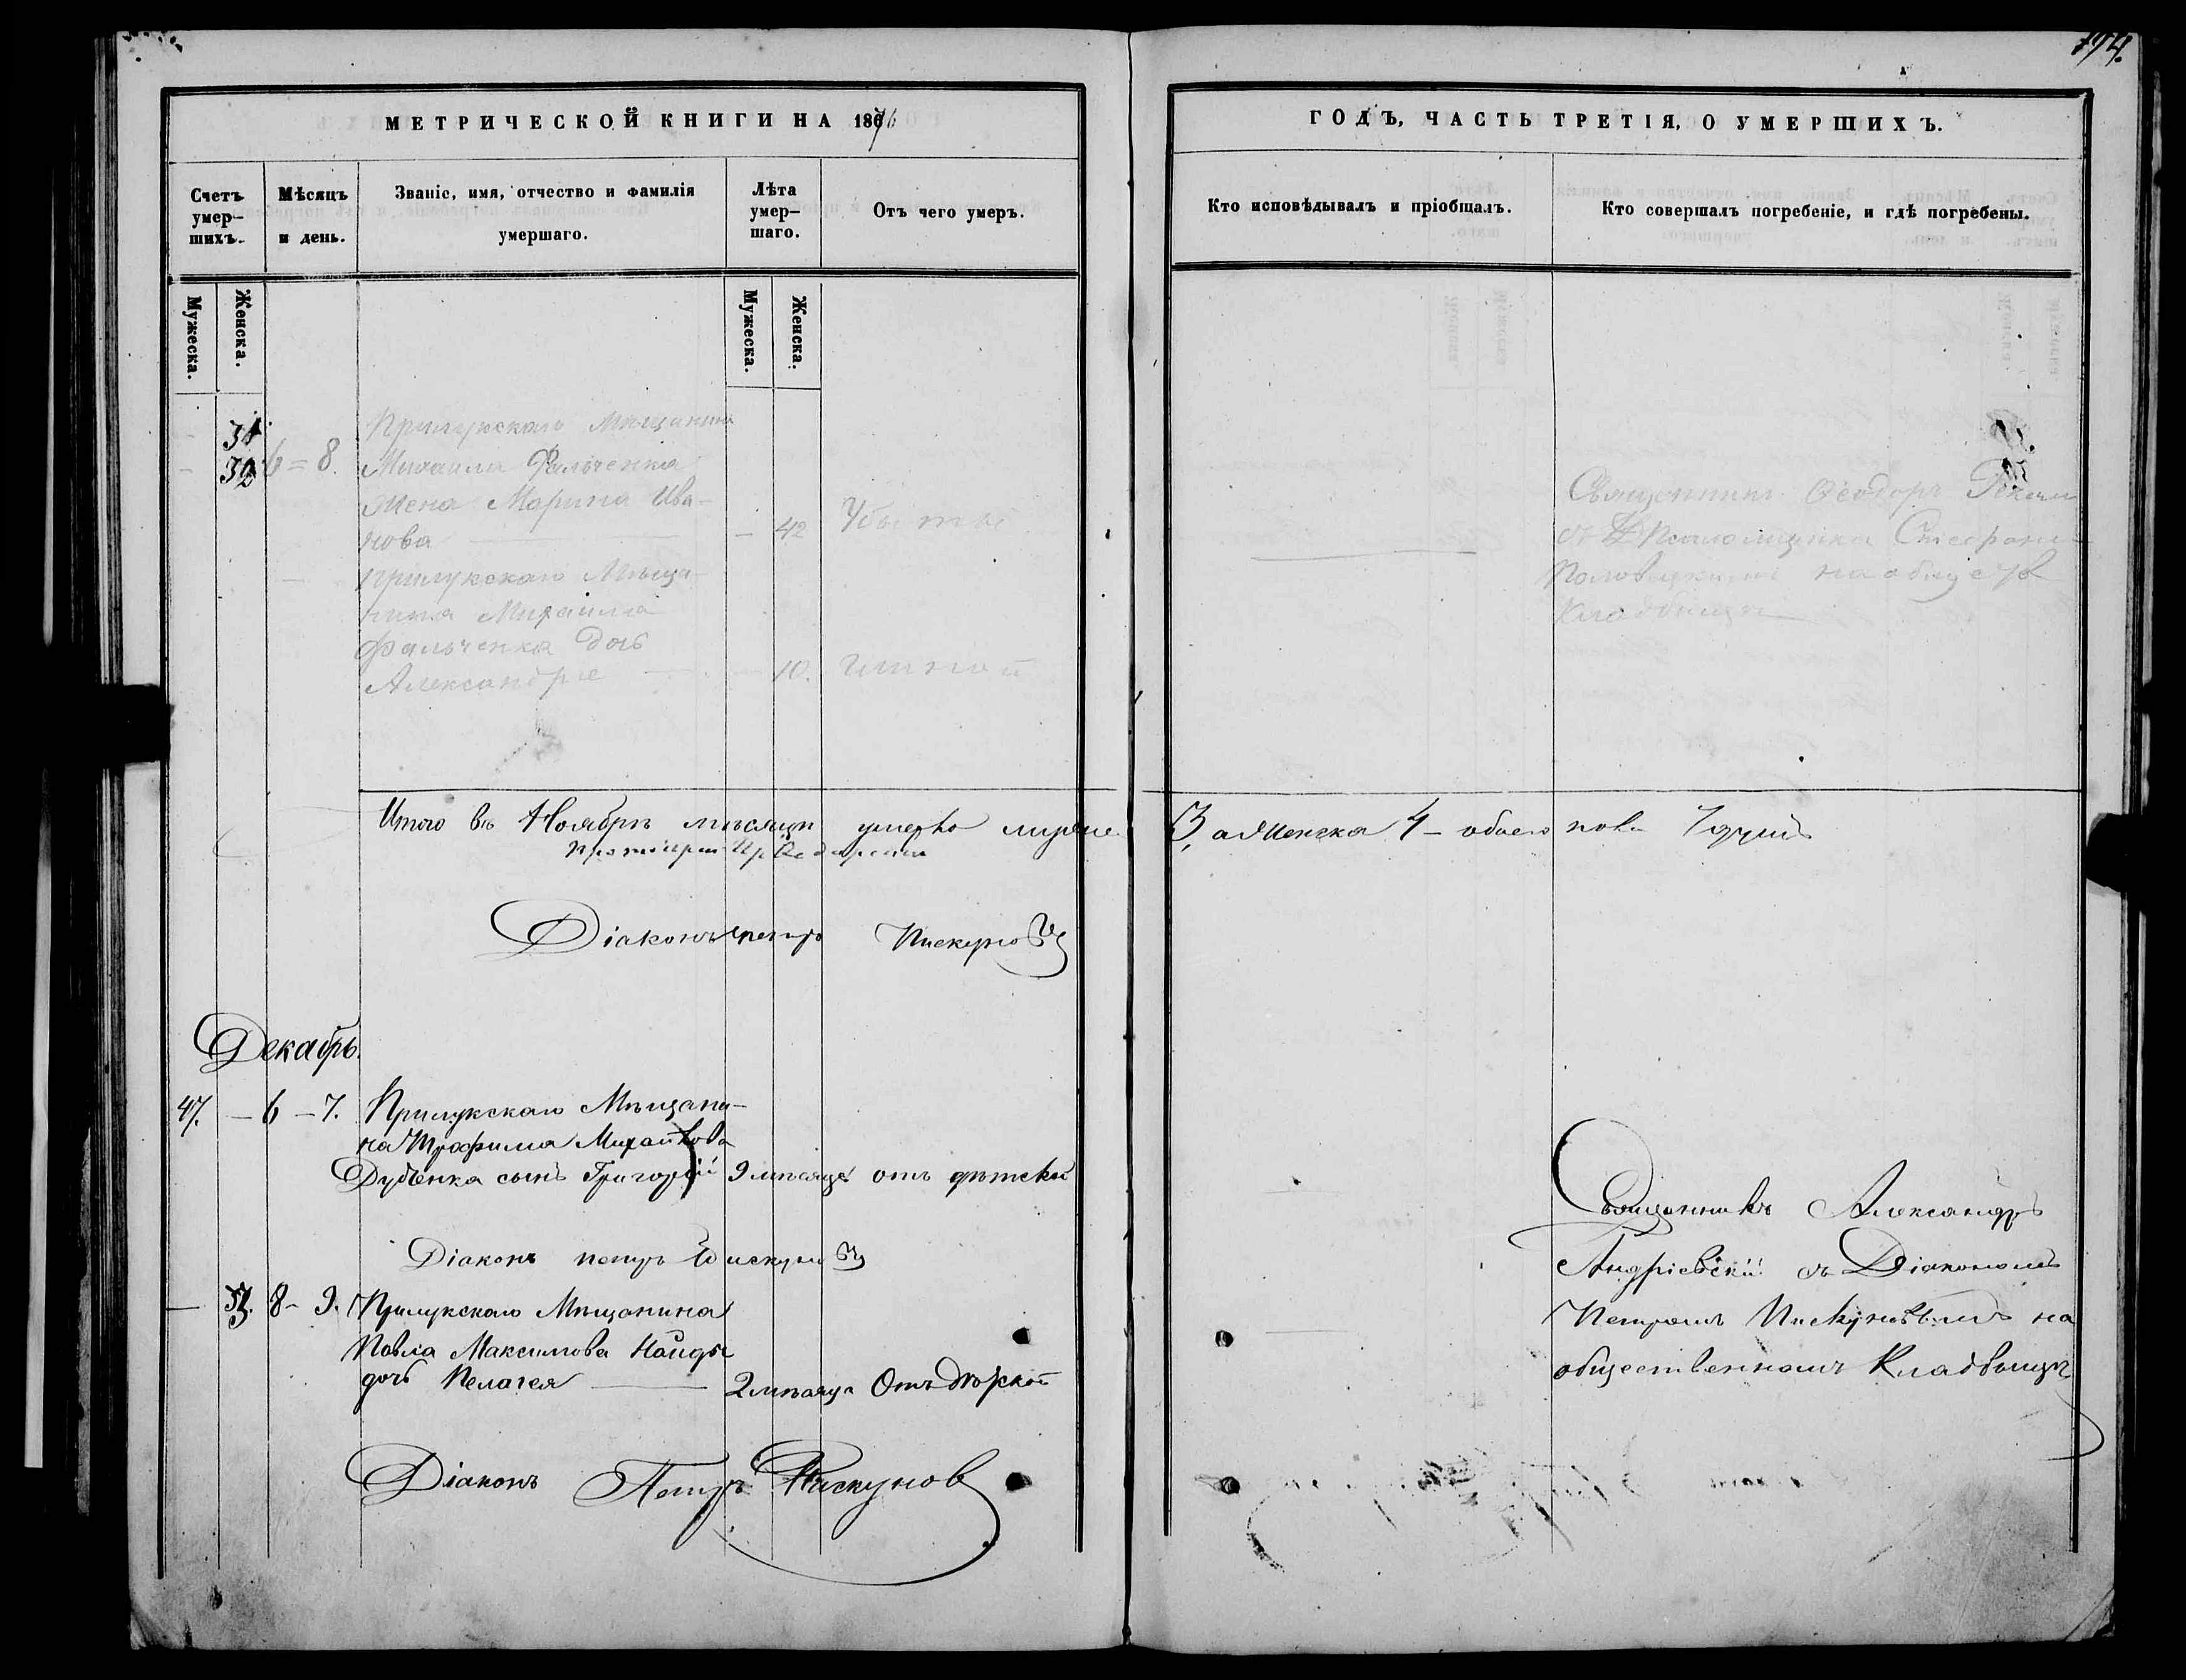 174.
МЕТРИЧЕСКОЙ КНИГИ НА 1876
ГОДЪ, ЧАСТЬ ТРЕТІЯ, О УМЕРШИХЪ.
Счетъ умер-шихъ.
Мѣсяцъ и день.
Званіе, имя, отчество и фамилія умершаго.
Лѣта умер-шаго.
Отъ чего умеръ.
Кто исповѣдывалъ и пріобщалъ.
Кто совершалъ погребеніе, и гдѣ погребены.
Мужеска.
Женска.
Мужеска.
Женска.
31
32
6=8.
Прилукскаго Мѣщанина
Михаила Фальченка
жена Марина Ива-
нова — 42
Прилукскаго Мѣща-
нина Михаила
Фальченка дочь
Александра — 10.
Священникъ Ѳеодоръ
съ Псаломщикомъ Стефаномъ
Половецкимъ на общес
кладбищѣ
Итого въ Ноябрѣ мѣсяцѣ умерло мужес. 3, а женска 4 – обоего пола 7 душъ
Діаконъ Петръ Пискуновъ
Декабрь.
47. — 6 – 7. Прилукскаго Мѣщани-
на Трофима Михайлова
Дубенка сынъ Григорій 9 мѣсяцевъ отъ дѣтской
Діаконъ Петръ Пискуновъ
— 33. 8 – 9. Прилукскаго Мѣщанина
Павла Максимова Найды
дочь Пелагея — 2 мѣсяца Отъ дѣтской
Священникъ Александръ
Андріевскій съ Діакономъ
Петромъ Пискуновымъ на
общественномъ Кладбищѣ
Діаконъ Петръ Пискуновъ